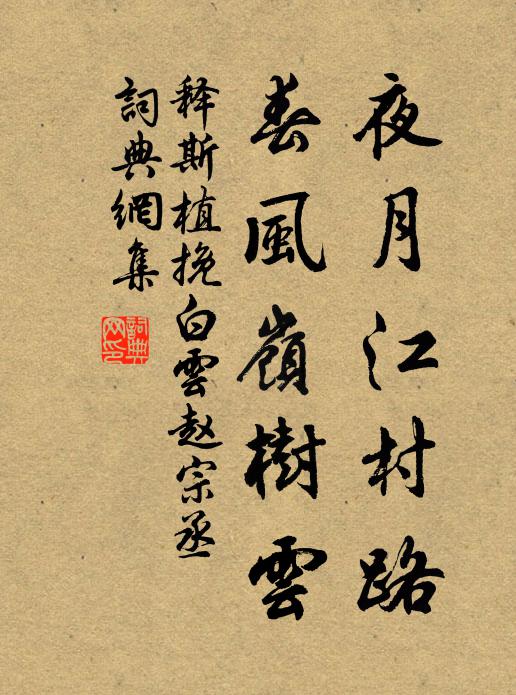 夜月江村路
春風嶺樹雲
释斯植挽白雲赵宗丞
詞典網集
詞典網印